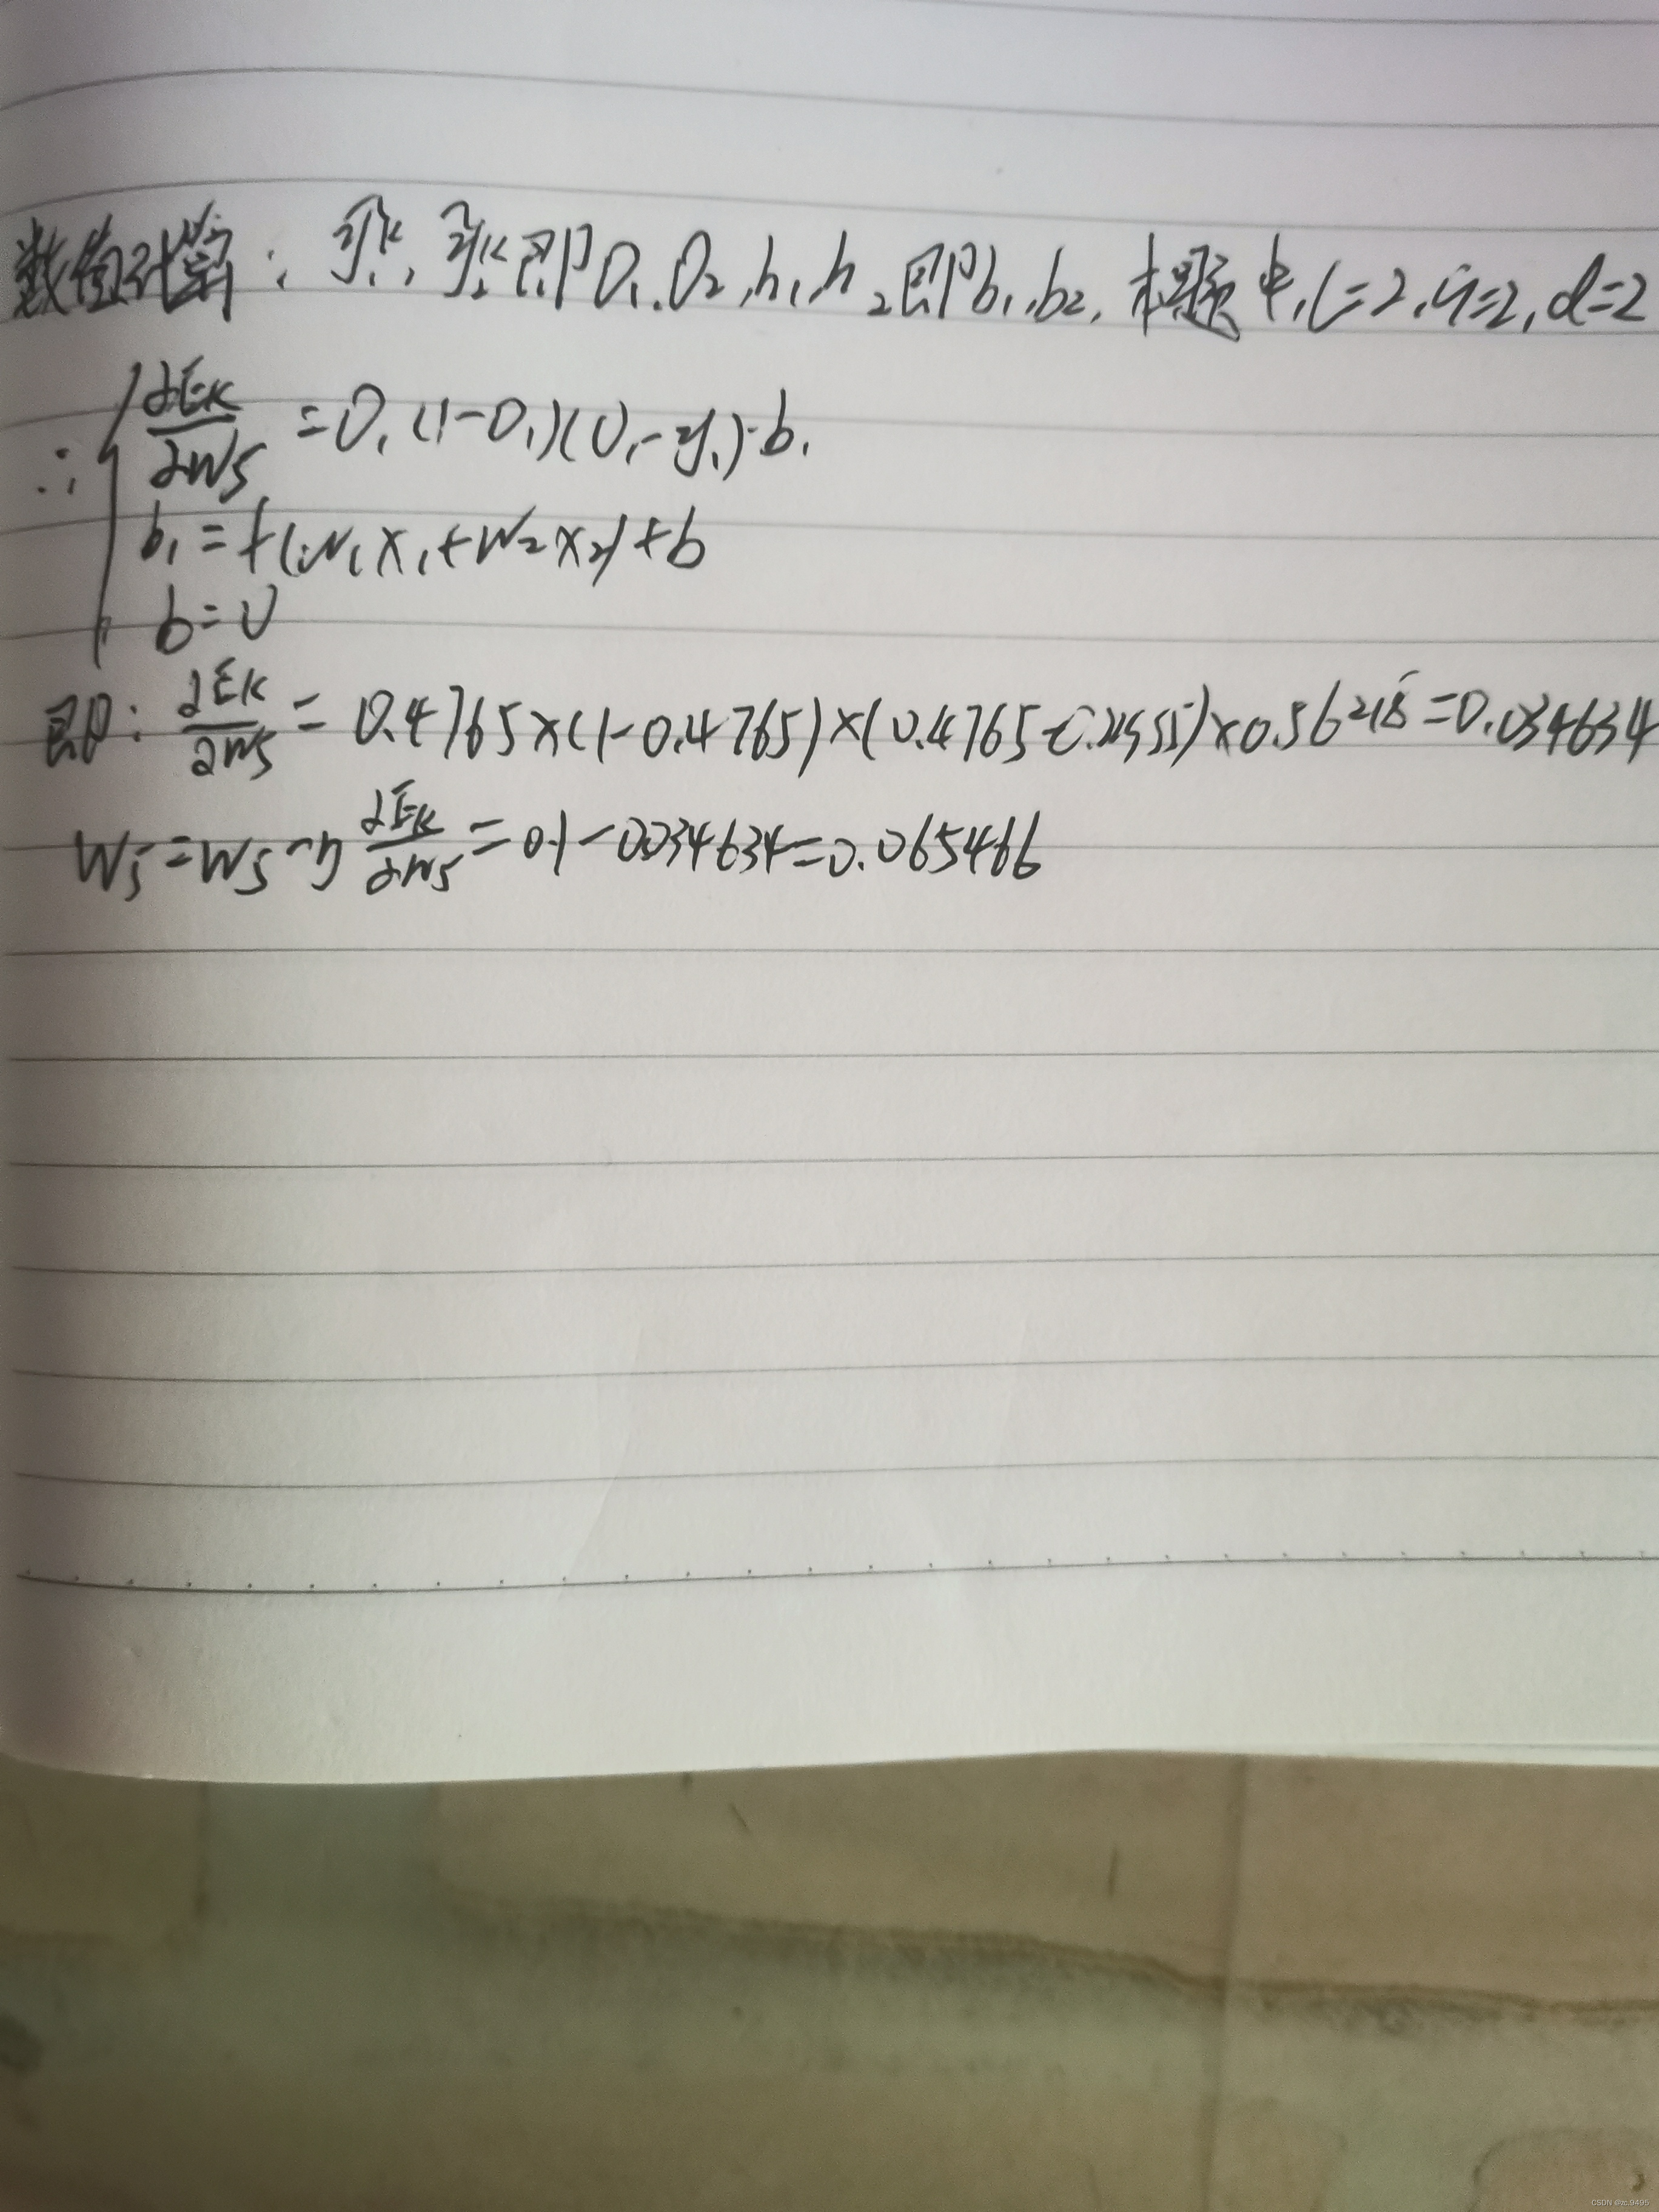 数值计算: ŷ₁ᵏ, ŷ₂ᵏ即O₁,O₂,h₁,h₂即b₁,b₂, 本题中,l=2,q=2,d=2
∴ { ∂Eₖ/∂W₅ = O₁(1-O₁)(O₁-y₁)·b₁
b₁=f(W₁X₁+W₂X₂)+b
b=0
即: ∂Eₖ/∂W₅ = 0.4765×(1-0.4765)×(0.4765-)×0.56218=0.034634
W₅=W₅-η ∂Eₖ/∂W₅ =0.1-0.034634=0.065466
CSDN @zc.9495